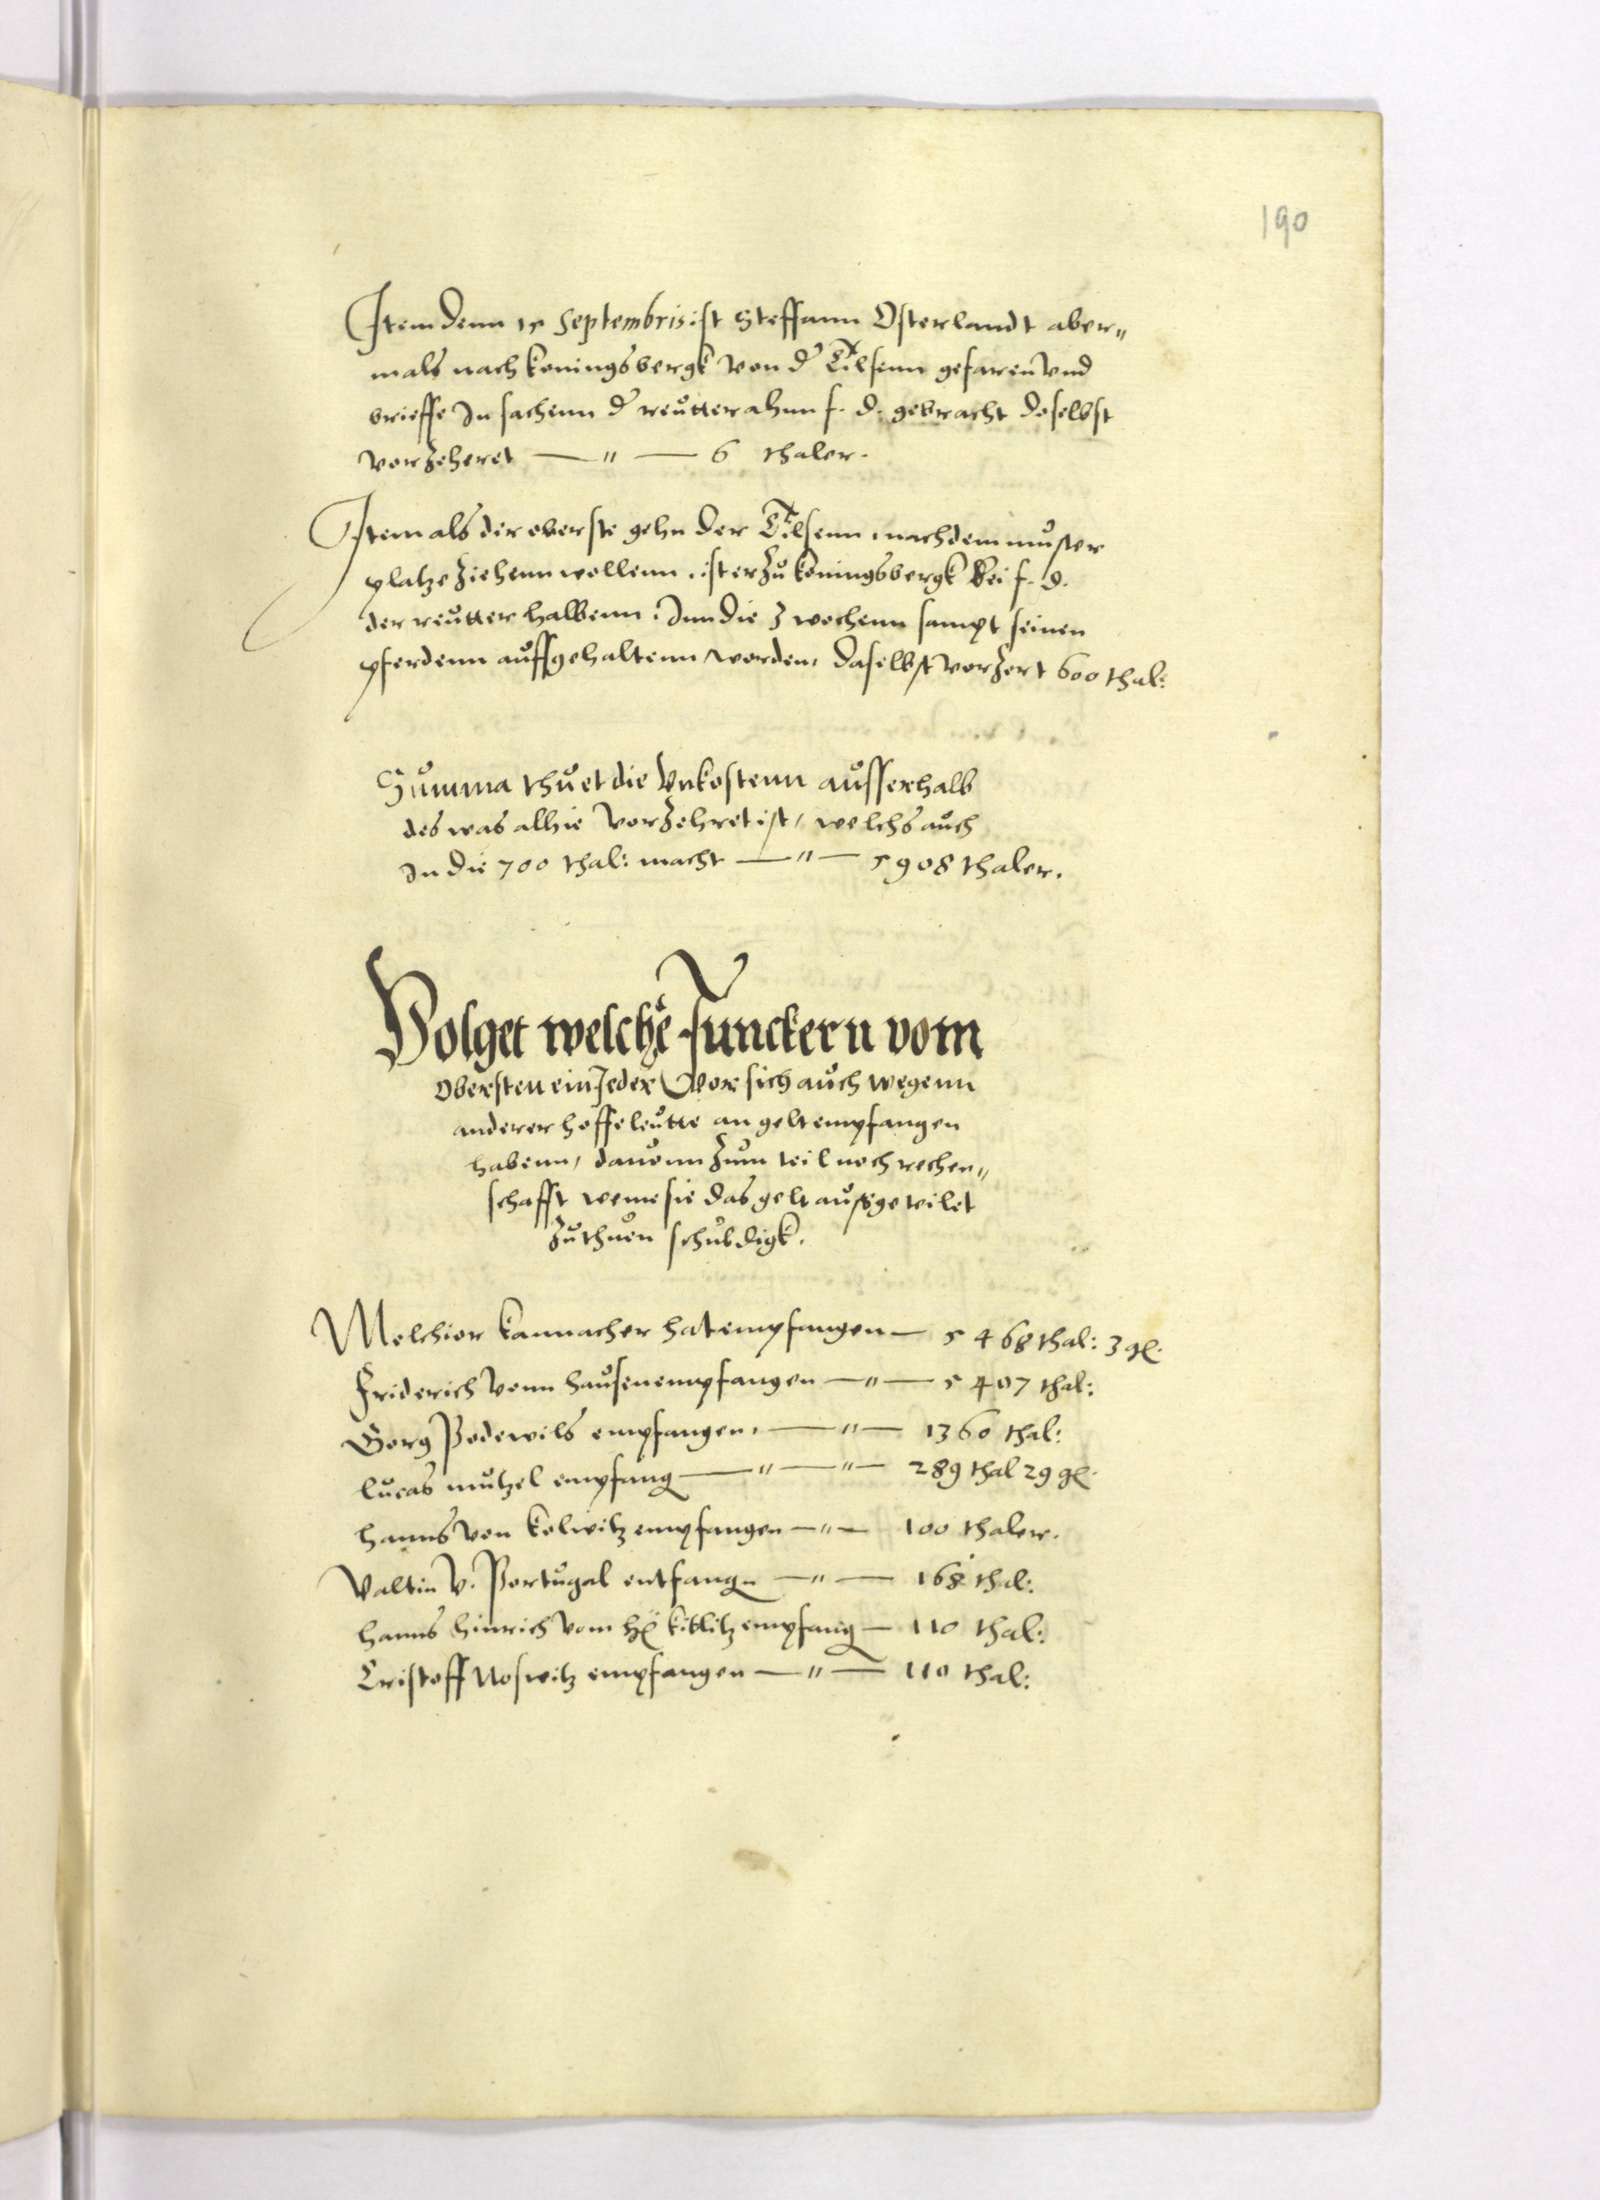 190
Item denn 15 Septembris ist Steffann Osterlandt aber„
mals nach Koningsbergk von d' Tilsenn gefaren vnd
brieffe In sachenn d' reutter ahnn f. d. gebracht doselbst
vorzeheret — „ — 6 thaler.
Item als der oberste gehn der Tilsenn nach dem muster
platze ziehenn wollenn, ist er zu koningsbergk bei f. d.
der reutter halbenn, Inn die 3 wochenn sampt seinen
pferdenn auffgehaltenn worden, daselbst vorzert 600 thal:
Summa thuet die Vnkostenn ausserhalb
des was alhie vorzehret ist, welchs auch
In die 700 thal: macht — „ — 5908 thaler.
Volget welche Junckern vom
Obersten ein Jeder vor sich auch wegenn
anderer hoffeleutte an gelt empfangen
habenn, dauonn zum teil noch rechen„
schafft weme sie das gelt aussgeteilet
zuthuen schuldigk.
Melchior kannacher hat empfangen — 5468 thal: 3 gl.
Friderich vonn hausen empfangen — „ — 5407 thal:
Georg Podewils empfangen, — „ — 1360 thal:
lucas mutzel empfang — „ — „ — 289 thal 29 gl.
hanns von kolwitz empfangen — „ — 100 thaler.
Valtin v. Portugal entfangn — „ — 168 thal:
hanns hinrich vom kittlitz empfang — 110 thal:
Cristoff Noswitz empfangen — „ — 110 thal: